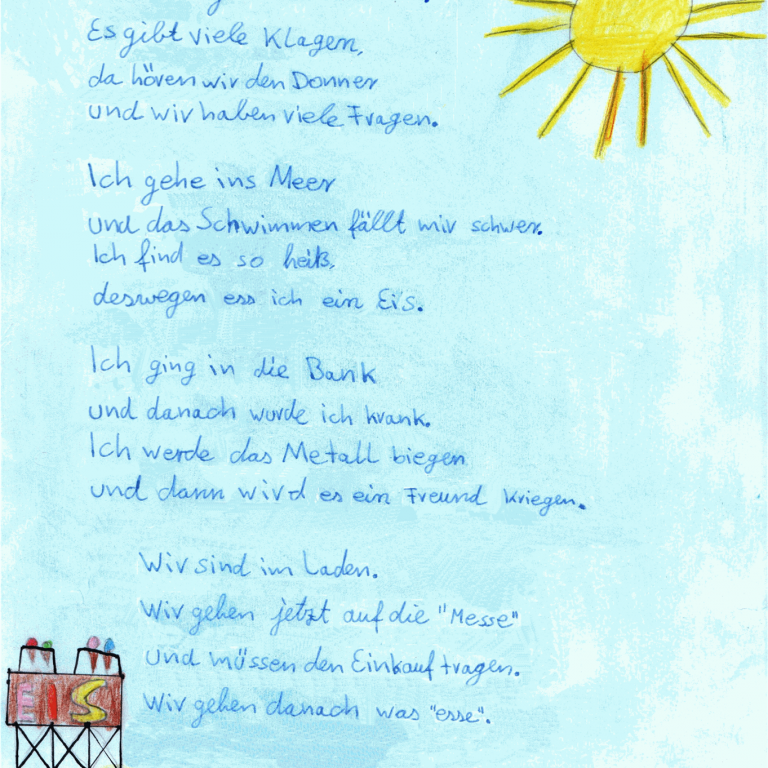 Es gibt viele Klagen,
da hören wir den Donner
und wir haben viele Fragen.
Ich gehe ins Meer
und das Schwimmen fällt mir schwer.
Ich find es so heiß,
deswegen ess ich ein Eis.
Ich ging in die Bank
und danach wurde ich krank.
Ich werde das Metall biegen
und dann wird es ein Freund kriegen.
Wir sind im Laden.
Wir gehen jetzt auf die "Messe"
und müssen den Einkauf tragen.
Wir gehen danach was "esse".
EIS